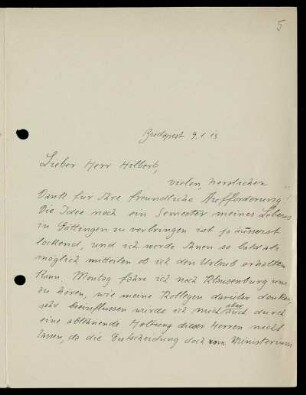 5
Budapest 9.1.14
Lieber Herr Hilbert,
vielen, herzlichen
Dank für Ihre freundliche Aufforderung!
Die Idee noch ein Semester meines Lebens
in Göttingen zu verbringen ist ja äusserst
lockend, und ich werde Ihnen so bald als
möglich mitteilen ob ich den Urlaub erhalten
kann. Montag fahre ich nach Klausenburg um
zu hören, wie meine Kollegen darüber denken,
beeinflussen werde ich mich aber durch
eine ablehnende Haltung dieser Herren nicht
lassen, da die Entscheidung doch vom Ministerium